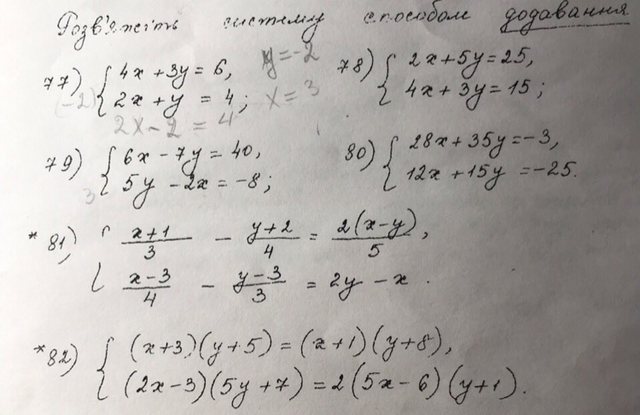 Розв'яжіть систему способом додавання
77) { 4x + 3y = 6, y = -2
(-2) { 2x + y = 4; x = 3
2x - 2 = 4
78) { 2x + 5y = 25,
{ 4x + 3y = 15;
79) { 6x - 7y = 40,
3 { 5y - 2x = -8;
80) { 28x + 35y = -3,
{ 12x + 15y = -25.
* 81) { (x+1)/3 - (y+2)/4 = 2(x-y)/5,
{ (x-3)/4 - (y-3)/3 = 2y - x.
* 82) { (x+3)(y+5) = (x+1)(y+8),
{ (2x-3)(5y+7) = 2(5x-6)(y+1).